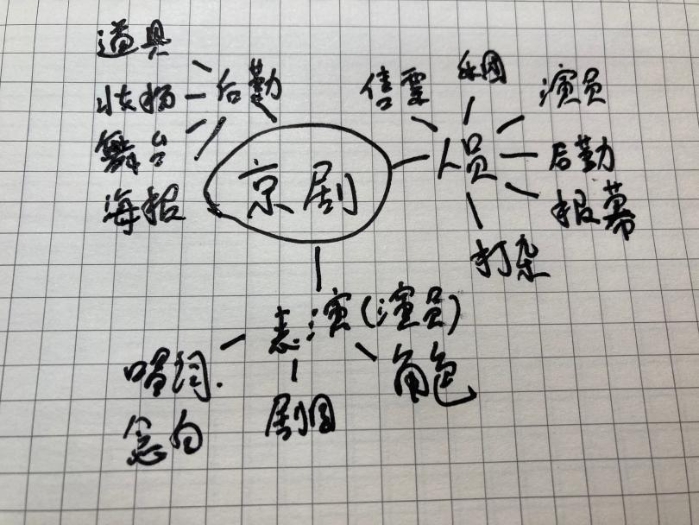 道具
后勤
舞台
海报
京剧
乐团
演员
人员
后勤
报幕
打杂
表演(演员)
唱词.
念白
剧目
角色